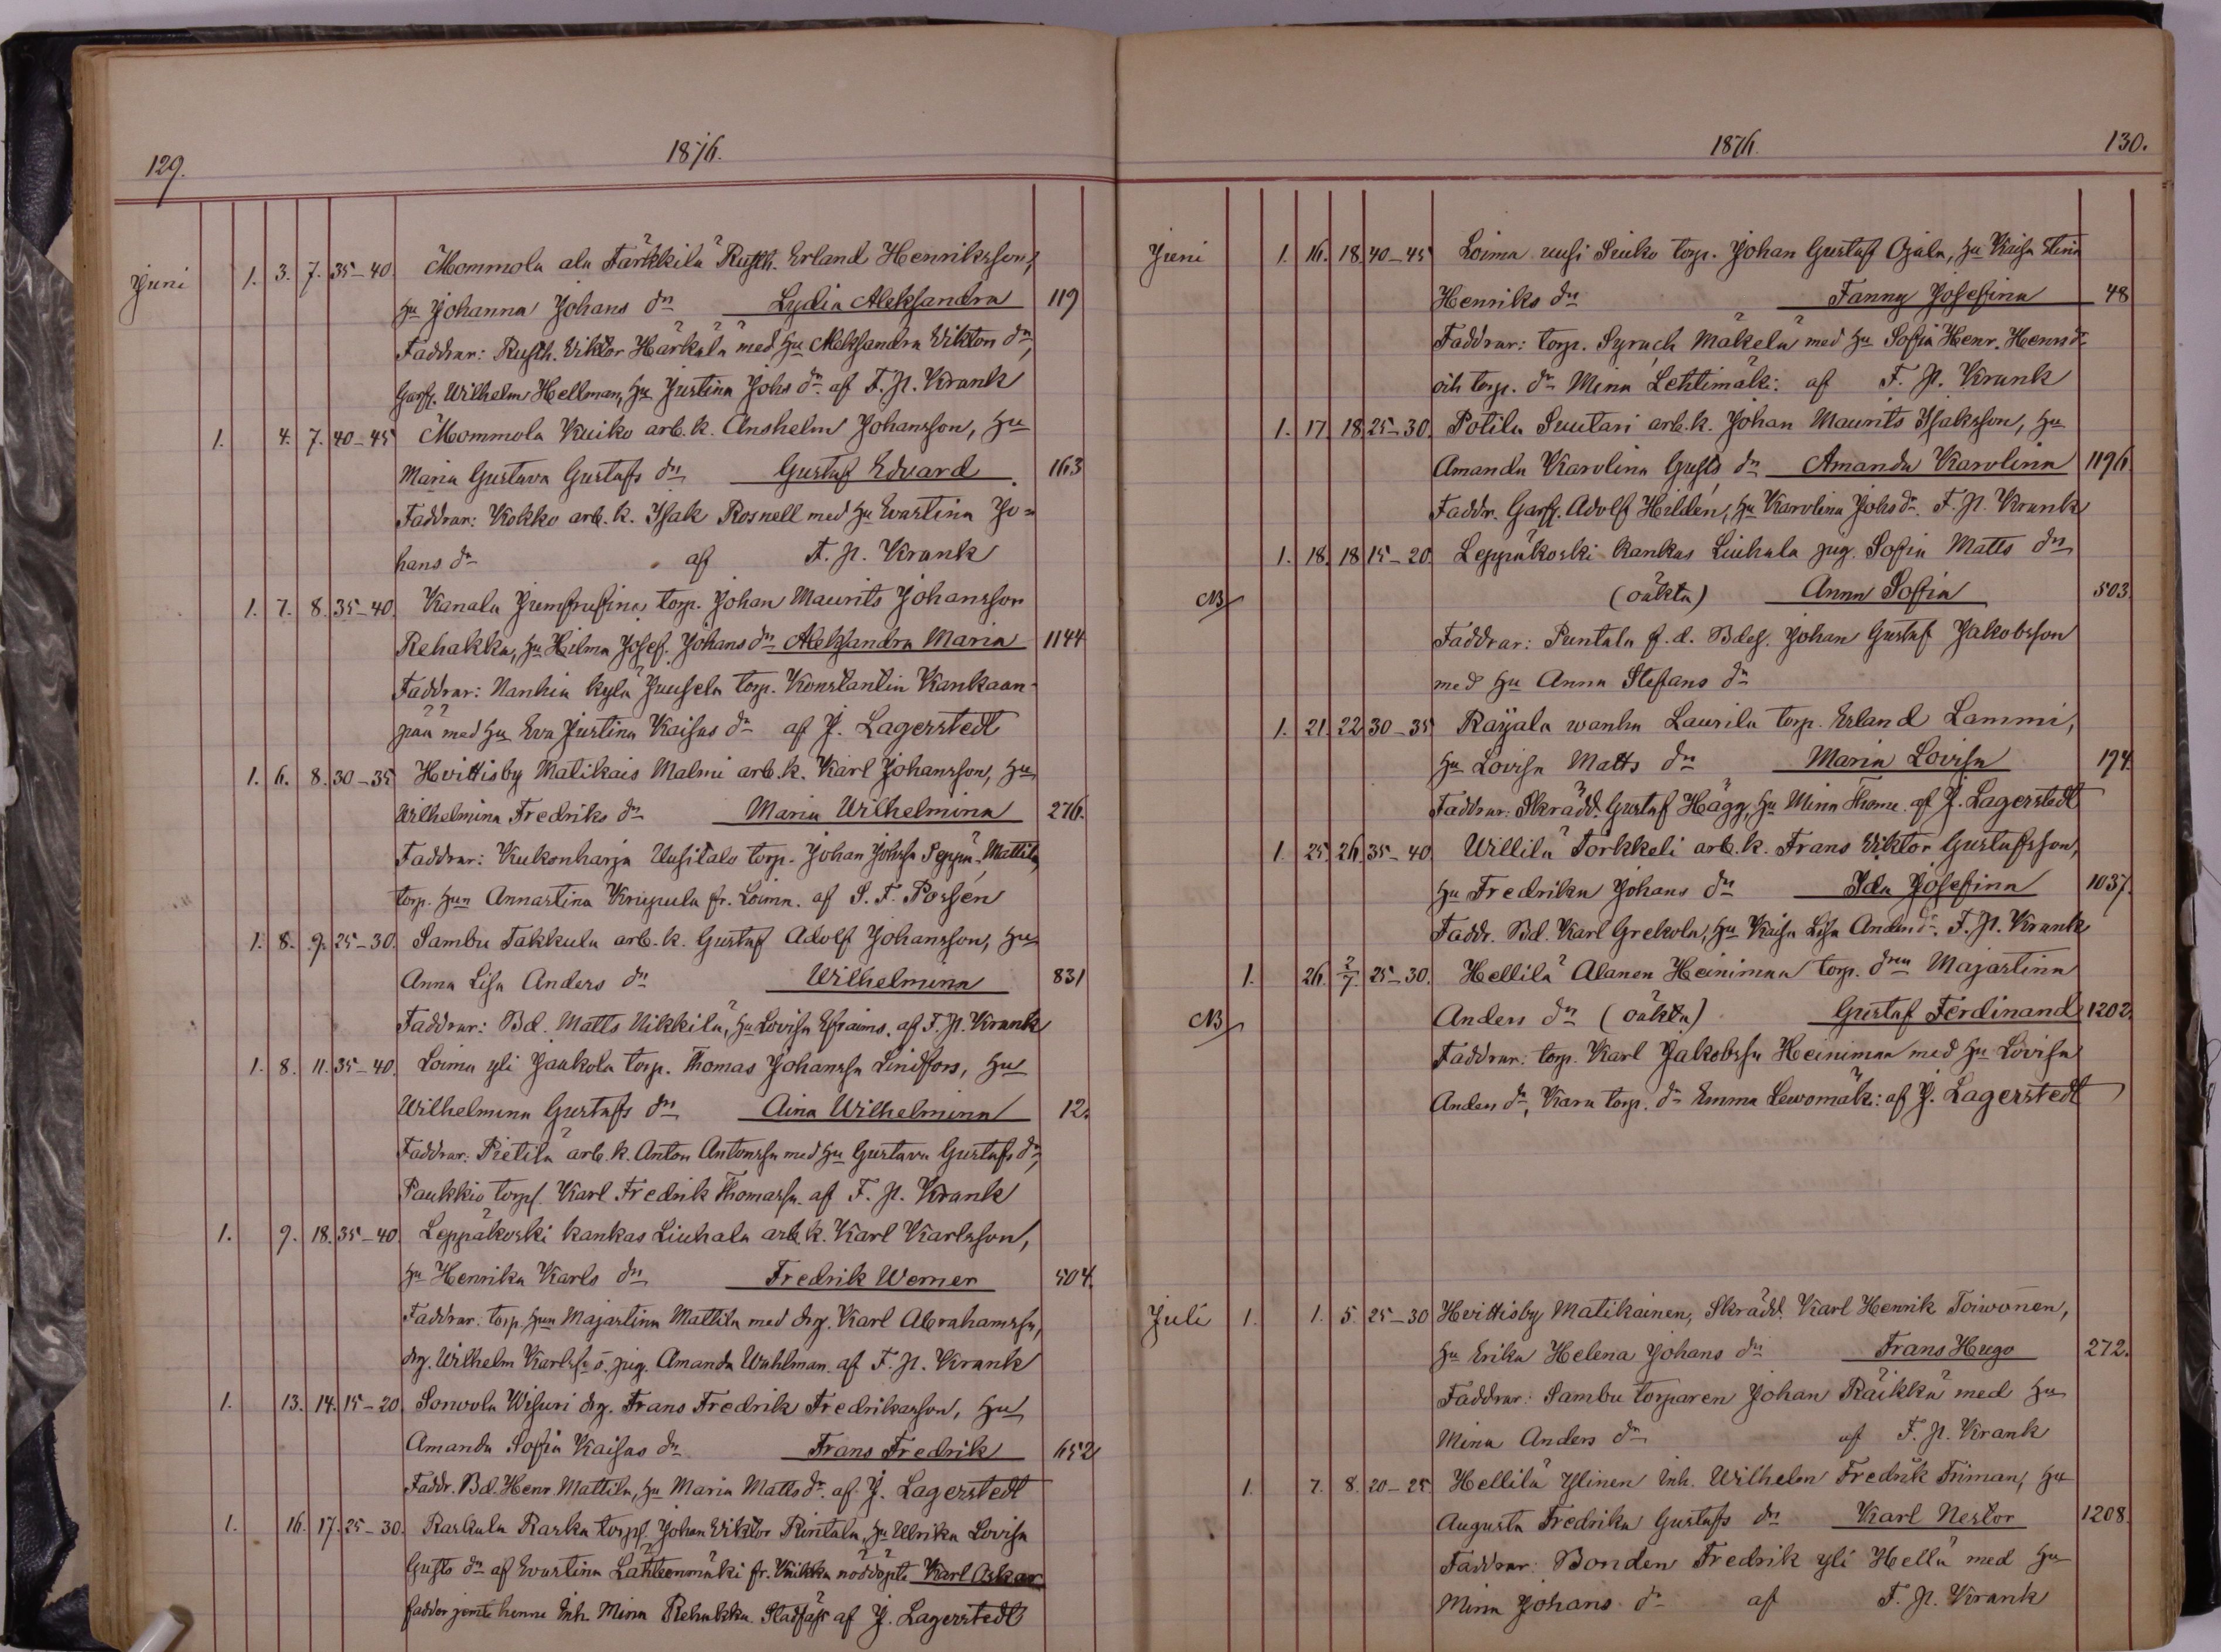 129.
1876.
Juni 1. 3. 7. 35–40. Mommola ala Tärkkilä Rusth. Erland Henriksson,
hu Johanna Johans dr Lydia Aleksandra 119
Faddrar: Rusth. Viktor Härkälä med hu Aleksandra Viktors dr,
Garfv. Wilhelm Hellman, hu Justina Johs dr af F. H. Krank
1. 4. 7. 40–45 Mommola Kuiko arb. k. Anshelm Johansson, hu
Maria Gustava Gustafs dr Gustaf Edvard. 163
Faddrar: Kokko arb. k. Isak Rosnell med hu Evastina Jo=
hans dr af F. H. Krank
1. 7. 8. 35–40. Kanala torp. Johan Maurits Johansson
Rehakka, hu Hilma Josef. Johans dr Aleksandra Maria 1144
Faddrar: Manhia kylä Juusela torp. Konstantin Kankaan-
pää med hu Eva Justina Kaisas dr af J. Lagerstedt
1. 6. 8. 30–35 Hvittisby Matikais Malmi arb. k. Karl Johansson, hu
Wilhelmina Fredriks dr Maria Wilhelmina 276.
Faddrar: Kukonharja Uusitalo torp. Johan Johssn Seppä-Mattila,
torp. hun Annastina Krupula fr. Loima. af S. F. Porsén
1. 8. 9. 25–30. Sambu Takkula arb. k. Gustaf Adolf Johansson, hu
Anna Lisa Anders dr Wilhelmina 831
Faddrar: Bd. Matts Nikkilä, hu Lovisa Efraims. af F. H. Krank
1. 8. 11. 35–40. Loima yli Jaakola torp. Thomas Johanssn Lindfors, hu
Wilhelmina Gustafs dr Aina Wilhelmina 12.
Faddrar: Pietilä arb. k. Anton Antonssn med hu Gustava Gustafs dr,
Paukkio torps. Karl Fredrik Thomassn. af F. H. Krank
1. 9. 18. 35–40. Leppäkoski kankas Liuhala arb. k. Karl Karlsson,
hu Henrika Karls dr Fredrik Werner 504.
Faddrar. torp. hun Majastina Mattila med drg. Karl Abrahamssn,
drg. Wilhelm Karlssn o. pig. Amanda Wahlman. af F. H. Krank
1. 13. 14. 15–20 Sonvola Wisuri drg. Frans Fredrik Fredriksson, hu
Amanda Sofia Kaisas dr Frans Fredrik 652
Faddr. Bd. Henr Mattila, hu Maria Matts dr. af J. Lagerstedt
1. 16. 17. 25–30. Raskala Raska torps. Johan Viktor Rintala, hu Ulrika Lovisa
Gusts dr af Evastina Lähteenmäki fr. Kuikka nöddöpt. Karl Oskar
faddor jemte henne Inh. Mina Rehakka Stadfäst af J. Lagerstedt
1876.
130.
Juni 1. 16. 18. 40–45 Loima uusi Seuko torp. Johan Gustaf Ojala, hu Kaisa Stina
Henriks dr Fanny Josefina 48
Faddrar: torp. Syrach Mäkelä med hu Sofia Henr. Henrs dr
och torp. dr Mina Lehtimäki: af F. H. Krank
1. 17. 18. 25–30. Potila Suutari arb. k. Johan Maurits Isaksson, hu
Amanda Karolina Gusts dr Amanda Karolina 1196
Faddr. Garfv. Adolf Hildén, hu Karolina Johs dr. F. H. Krank
1. 18. 18 15–20. Leppäkoski kankas Liuhala pig. Sofia Matts dr
NB (oäkta) Anna Sofia 503.
Faddrar: Puntala f. d. Bdes. Johan Gustaf Jakobsson
med hu Anna Stefans dr
1. 21. 22. 30–35 Raijala wanha Laurila torp. Erland Lammi,
hu Lovisa Matts dr Maria Lovisa 194.
Faddrar: Skrädd. Gustaf Hägg, hu Mina Thome. af J. Lagerstedt
1. 25. 26. 35–40. Willilä Torkkeli arb. k. Frans Viktor Gustafsson,
hu Fredrika Johans dr Ida Josefina 1037.
Faddr. Bd. Karl Grekola, hu Kaisa Lisa Anders dr. F. H. Krank
1. 26. 2/7. 25–30. Hellilä Alanen Heinimaa torp. drn Majastina
NB Anders dr (oäkta) Gustaf Ferdinand 1202.
Faddrar: torp. Karl Jakobssn Heinimaa med hu Lovisa
Anders dr, Kara torp. dr Emma Lewomäki: af J. Lagerstedt
Juli 1. 1. 5. 25–30 Hvittisby Matikainen, Skrädd. Karl Henrik Toiwonen,
hu Erika Helena Johans dr Frans Hugo 272.
Faddrar: Sambu torparen Johan Räikkä med hu
Mina Anders dr af F. H. Krank
1. 7. 8. 20–25 Hellilä Ylinen Inh. Wilhelm Fredrik Friman, hu
Augusta Fredrika Gustafs dr Karl Nestor 1208.
Faddrar: Bonden Fredrik yli Hellä med hu
Mina Johans dr af F. H. Krank